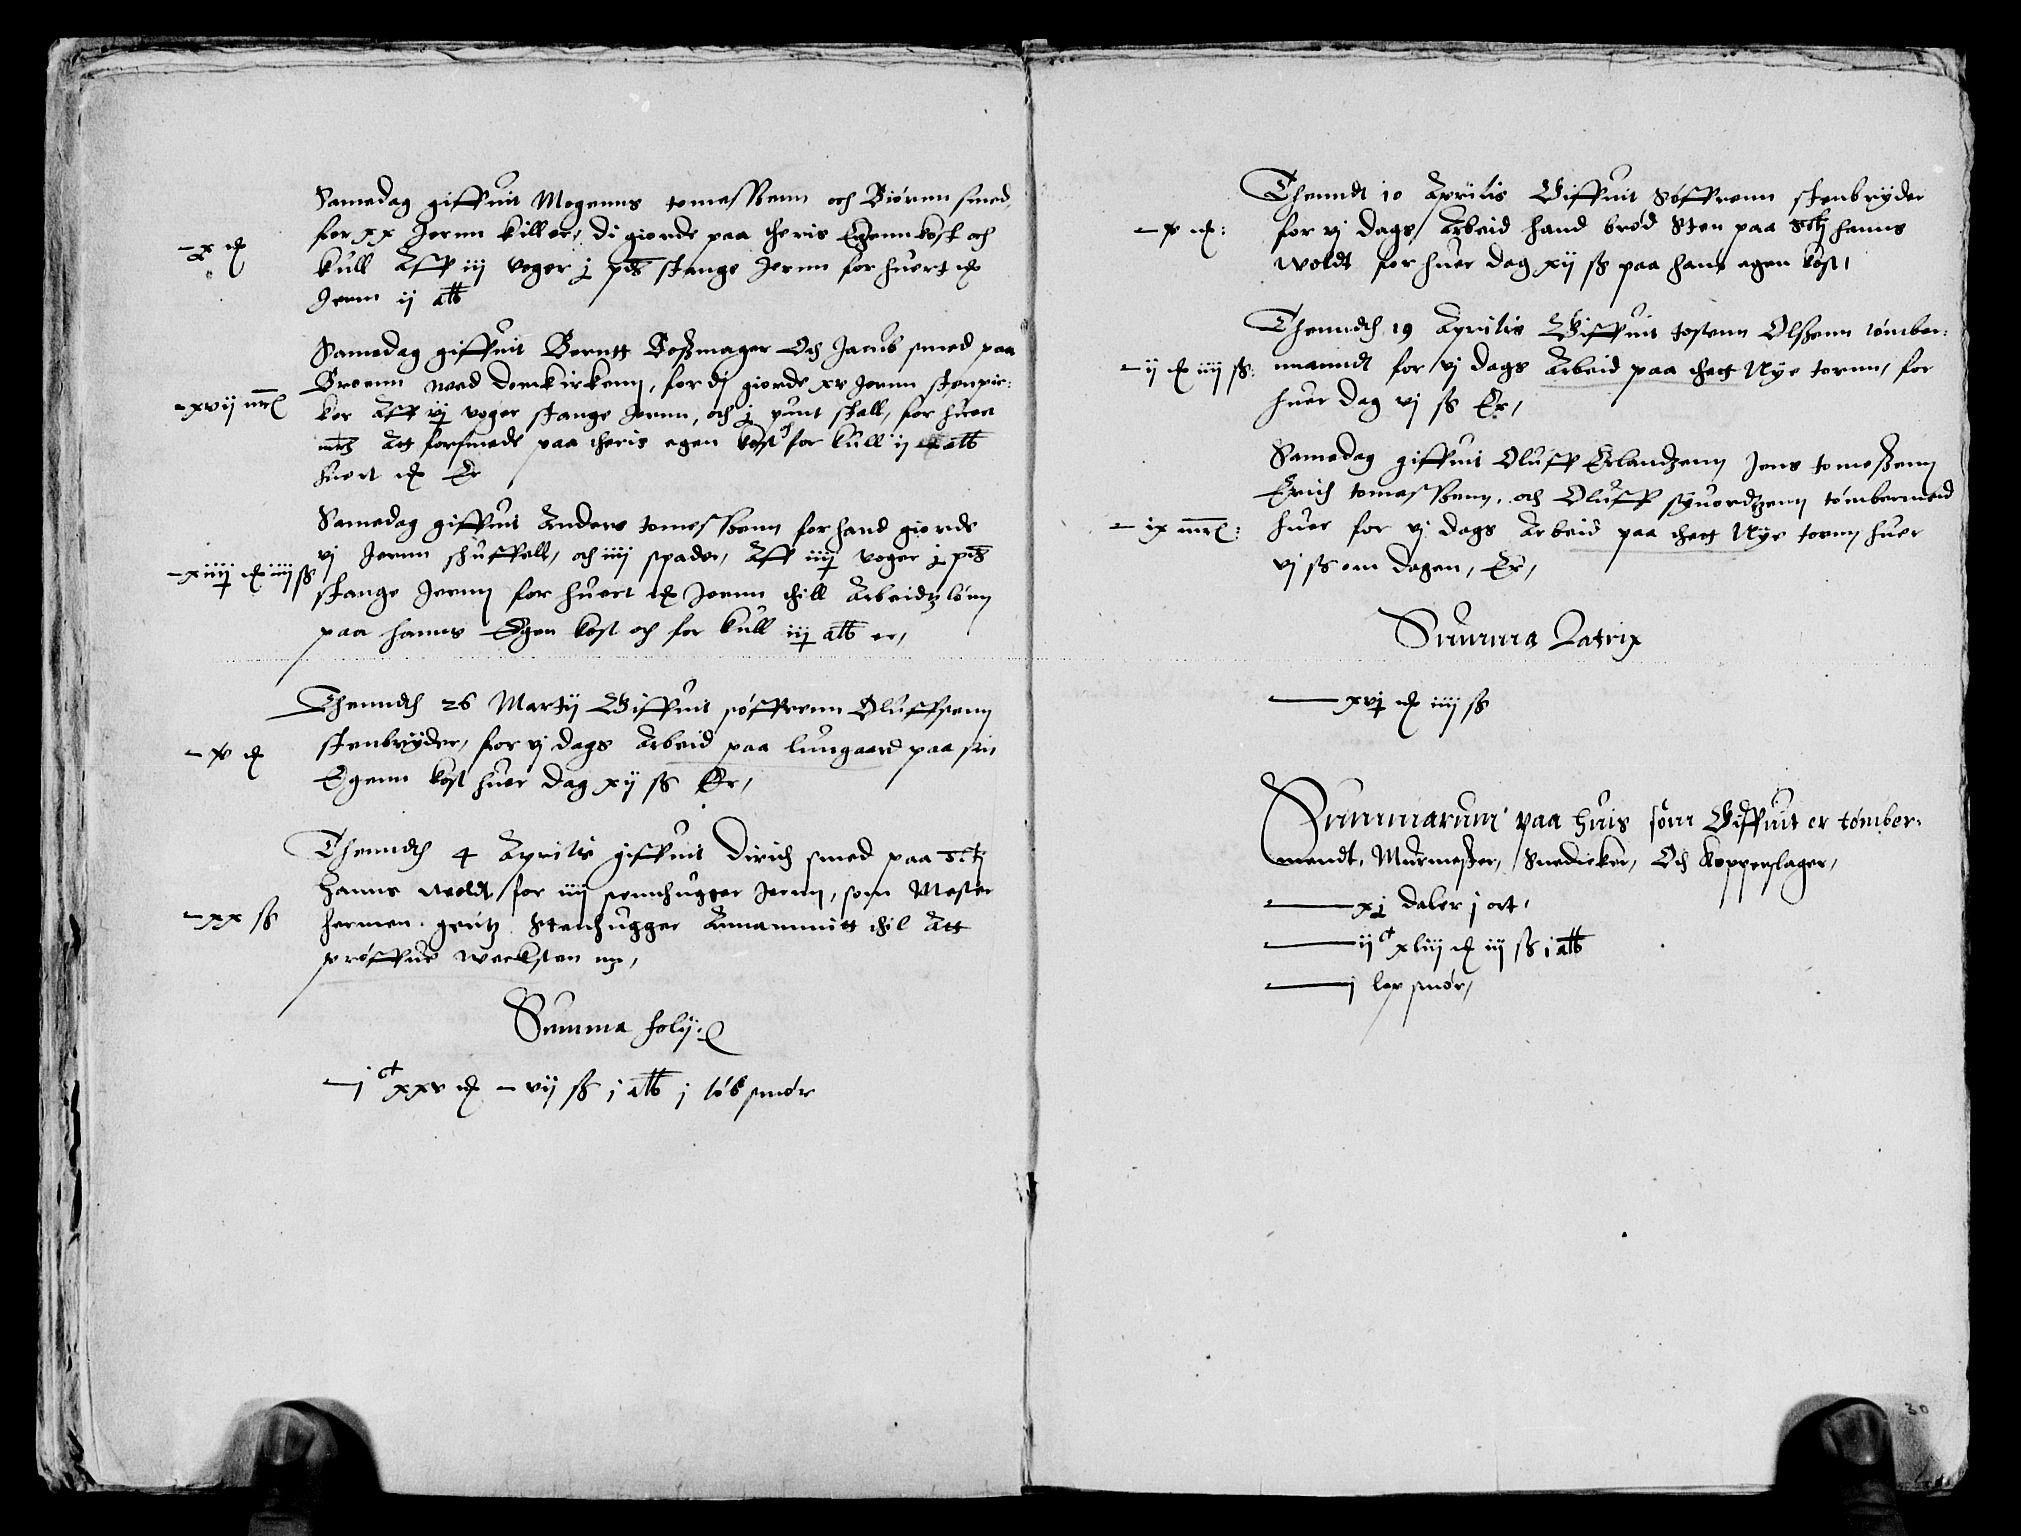 Samedag giffuit Mogenns tomessenn och Biörnn smed
for xx Jernn killer, di giorde paa theris Egenn kost och
– x mk
kull Aff iij voger j pd stange Jernn for huert mk
Jernn ij alb
Samedag giffuit Berntt Bossmager Och Jacub smed paa
Broenn wed domkirkenn, for di giorde xv Jernn stenpic:
– xvij mrc
ker Aff vj voger stange Jernn, och j punt stall, for huert
mrk Att forsmede paa theris egen kost for kull ij alb
huert mk Er
Samedag giffuit Anders tomessenn for hand giorde
vj Jernn skuffell, och iiij spader, Aff iiij voger j pd
– xiiij mk iiij ss
stange Jernn for huert mk Jernn thill Arbeidtz lönn
paa hanns Egen kost och for kull iij alb er,
Thenndh 26 Martij Giffuit söffrenn Oluffsenn
– x mk
stenbryder, for vj dags Arbeid paa lungaard paa sin
Egenn kost huer dag xij ss Er,
Thenndh 4 Aprilis giffuit Dirich smed paa
hanns woldt for iiij stenhugger Jernn, som Mester
– xx ss
hermen gertz Stenhugger Annammitt thil Att
pröffue weeksten
Summa folij
– j c xxv mk – vij ss j alb j löb smör
Thenndt 10 Aprilis Giffuit Söffrenn stenbryder
– x mk:
for vj dags Arbeid hand bröd Sten paa hanns
woldt for huer dag xij ss paa hans egen kost,
Thenndh 19 Aprilis Giffuit tostenn Olssenn tömber:
– ij mk iiij ss:
manndt for vj dags Arbeid paa thett Nye tornn, for
huer dag vj ss Er,
Samedag giffuit Oluff Erlandzenn Jens tomessenn
Erich tomessenn, och Oluff syuordtzenn tömbermend
– ix mrc:
huer for vj dags Arbeid paa thett Nye tornn huer
vj ss om dagen, Er,
Summa Latrix
– xvj mk iiij ss
Summarum paa huis som Giffuit er tömber:
mendt, Murmester, Snedicker, Och Kopperslager,
– xj daler j ort,
– ij c xliij mk iij ss j alb
– j lop smör,
30